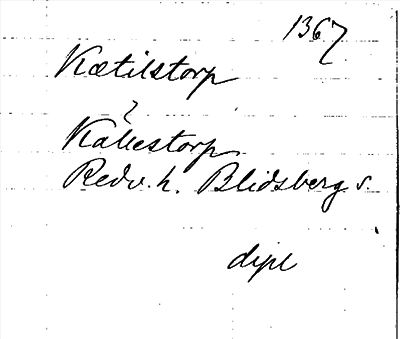 1367
Kætilstorp
?
Kälkestorp
Redv. h. Blidsberg s.
dipl